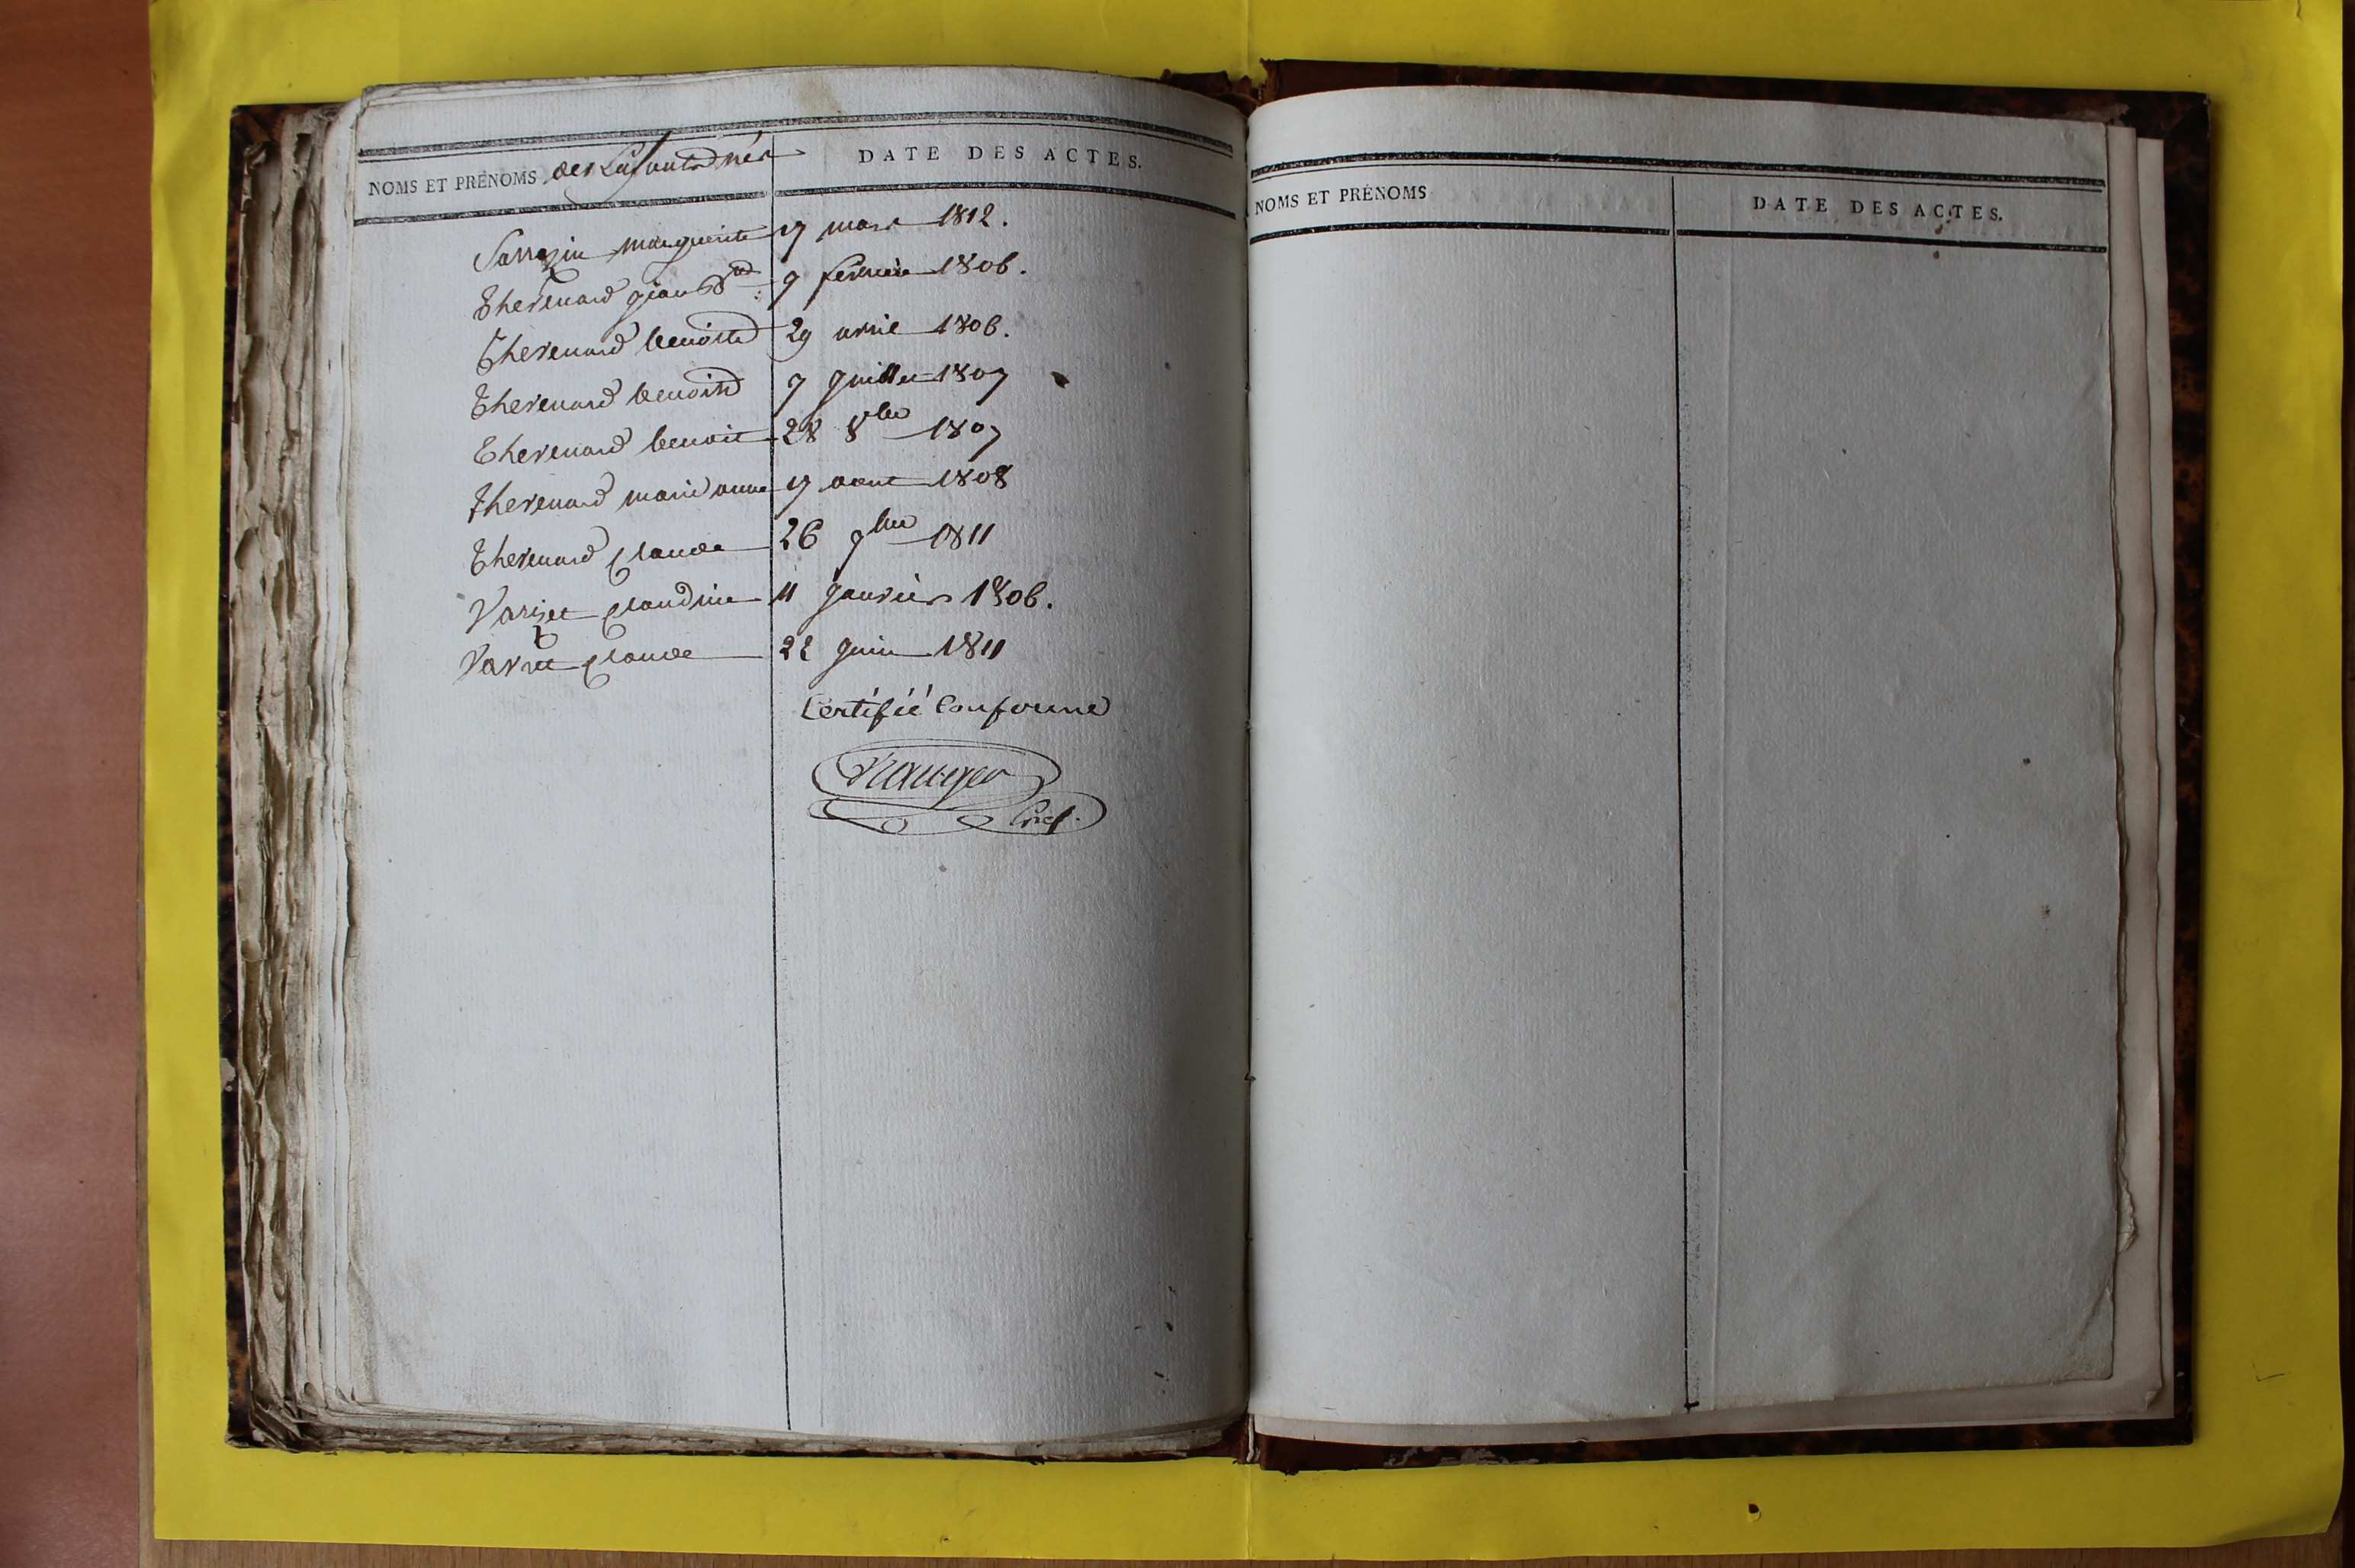 NOMS ET PRÉNOMS des Enfants nés
DATE DES ACTES.
Sarrazin marguerite 17 mars 1812.
Thevenard jean Bte 9 fevrier 1806.
Thevenard benoite 29 avril 1806.
Thevenard benoite 7 juillet 1807
Thevenard benoit 28 8bre 1807
Thevenard marie anne 17 aout 1808
Thevenard claude 26 9bre 1811
Varizet claudine 11 janvier 1806.
claude 22 juin 1811
Certifié Conforme
NOMS ET PRÉNOMS
DATE DES ACTES.